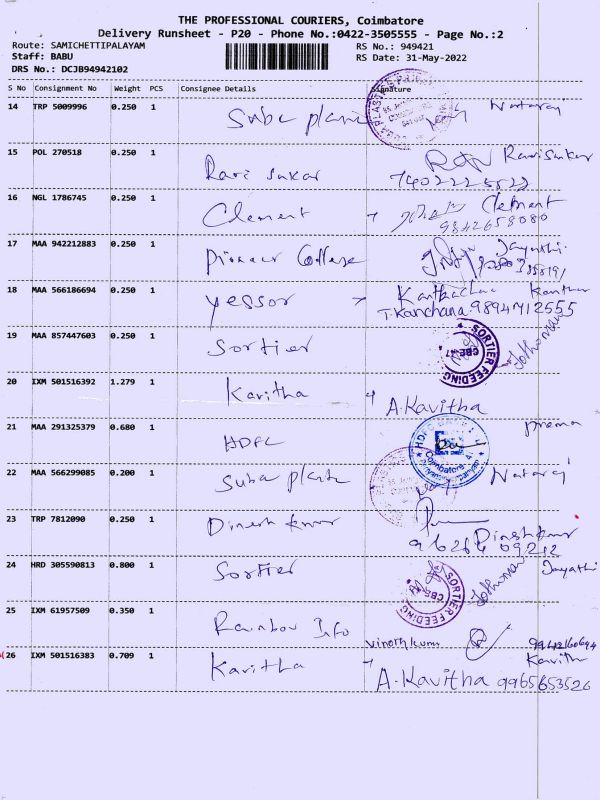 THE PROFESSIONAL COURIERS, Coimbatore
Delivery Runsheet - P20 - Phone No.:0422-3505555 - Page No.:2
Route: SAMICHETTIPALAYAM RS No.: 949421
Staff: BABU RS Date: 31-May-2022
DRS No.: DCJB94942102
S No Consignment No Weight PCS Consignee Details Signature
14 TRP 5009996 0.250 1 Suba plant Nataraj
15 POL 270518 0.250 1 Ravi sukar Ravi Sukar
16 NGL 1786745 0.250 1 Clement Clement
9842658080
17 MAA 942212883 0.250 1 Pioneer College Jayathi
18 MAA 566186694 0.250 1 yessor
T. Kanchana 9894712555
19 MAA 857447603 0.250 1 Sortier SORTIER FEEDING CBE-47
20 IXM 501516392 1.279 1 Kavitha A. Kavitha
21 MAA 291325379 0.680 1 HDFC prema
Coimbatore
22 MAA 566299085 0.200 1 Suba plants Nataraj
23 TRP 7812090 0.250 1 Dinesh kumar Dinesh kumar
24 HRD 305590813 0.800 1 Sortier SORTIER FEEDING CBE Jayathi
25 IXM 61957509 0.350 1 Rainbow Info Vinothkumar
26 IXM 501516383 0.709 1 Kavitha Kavitha
A. Kavitha 9965653526